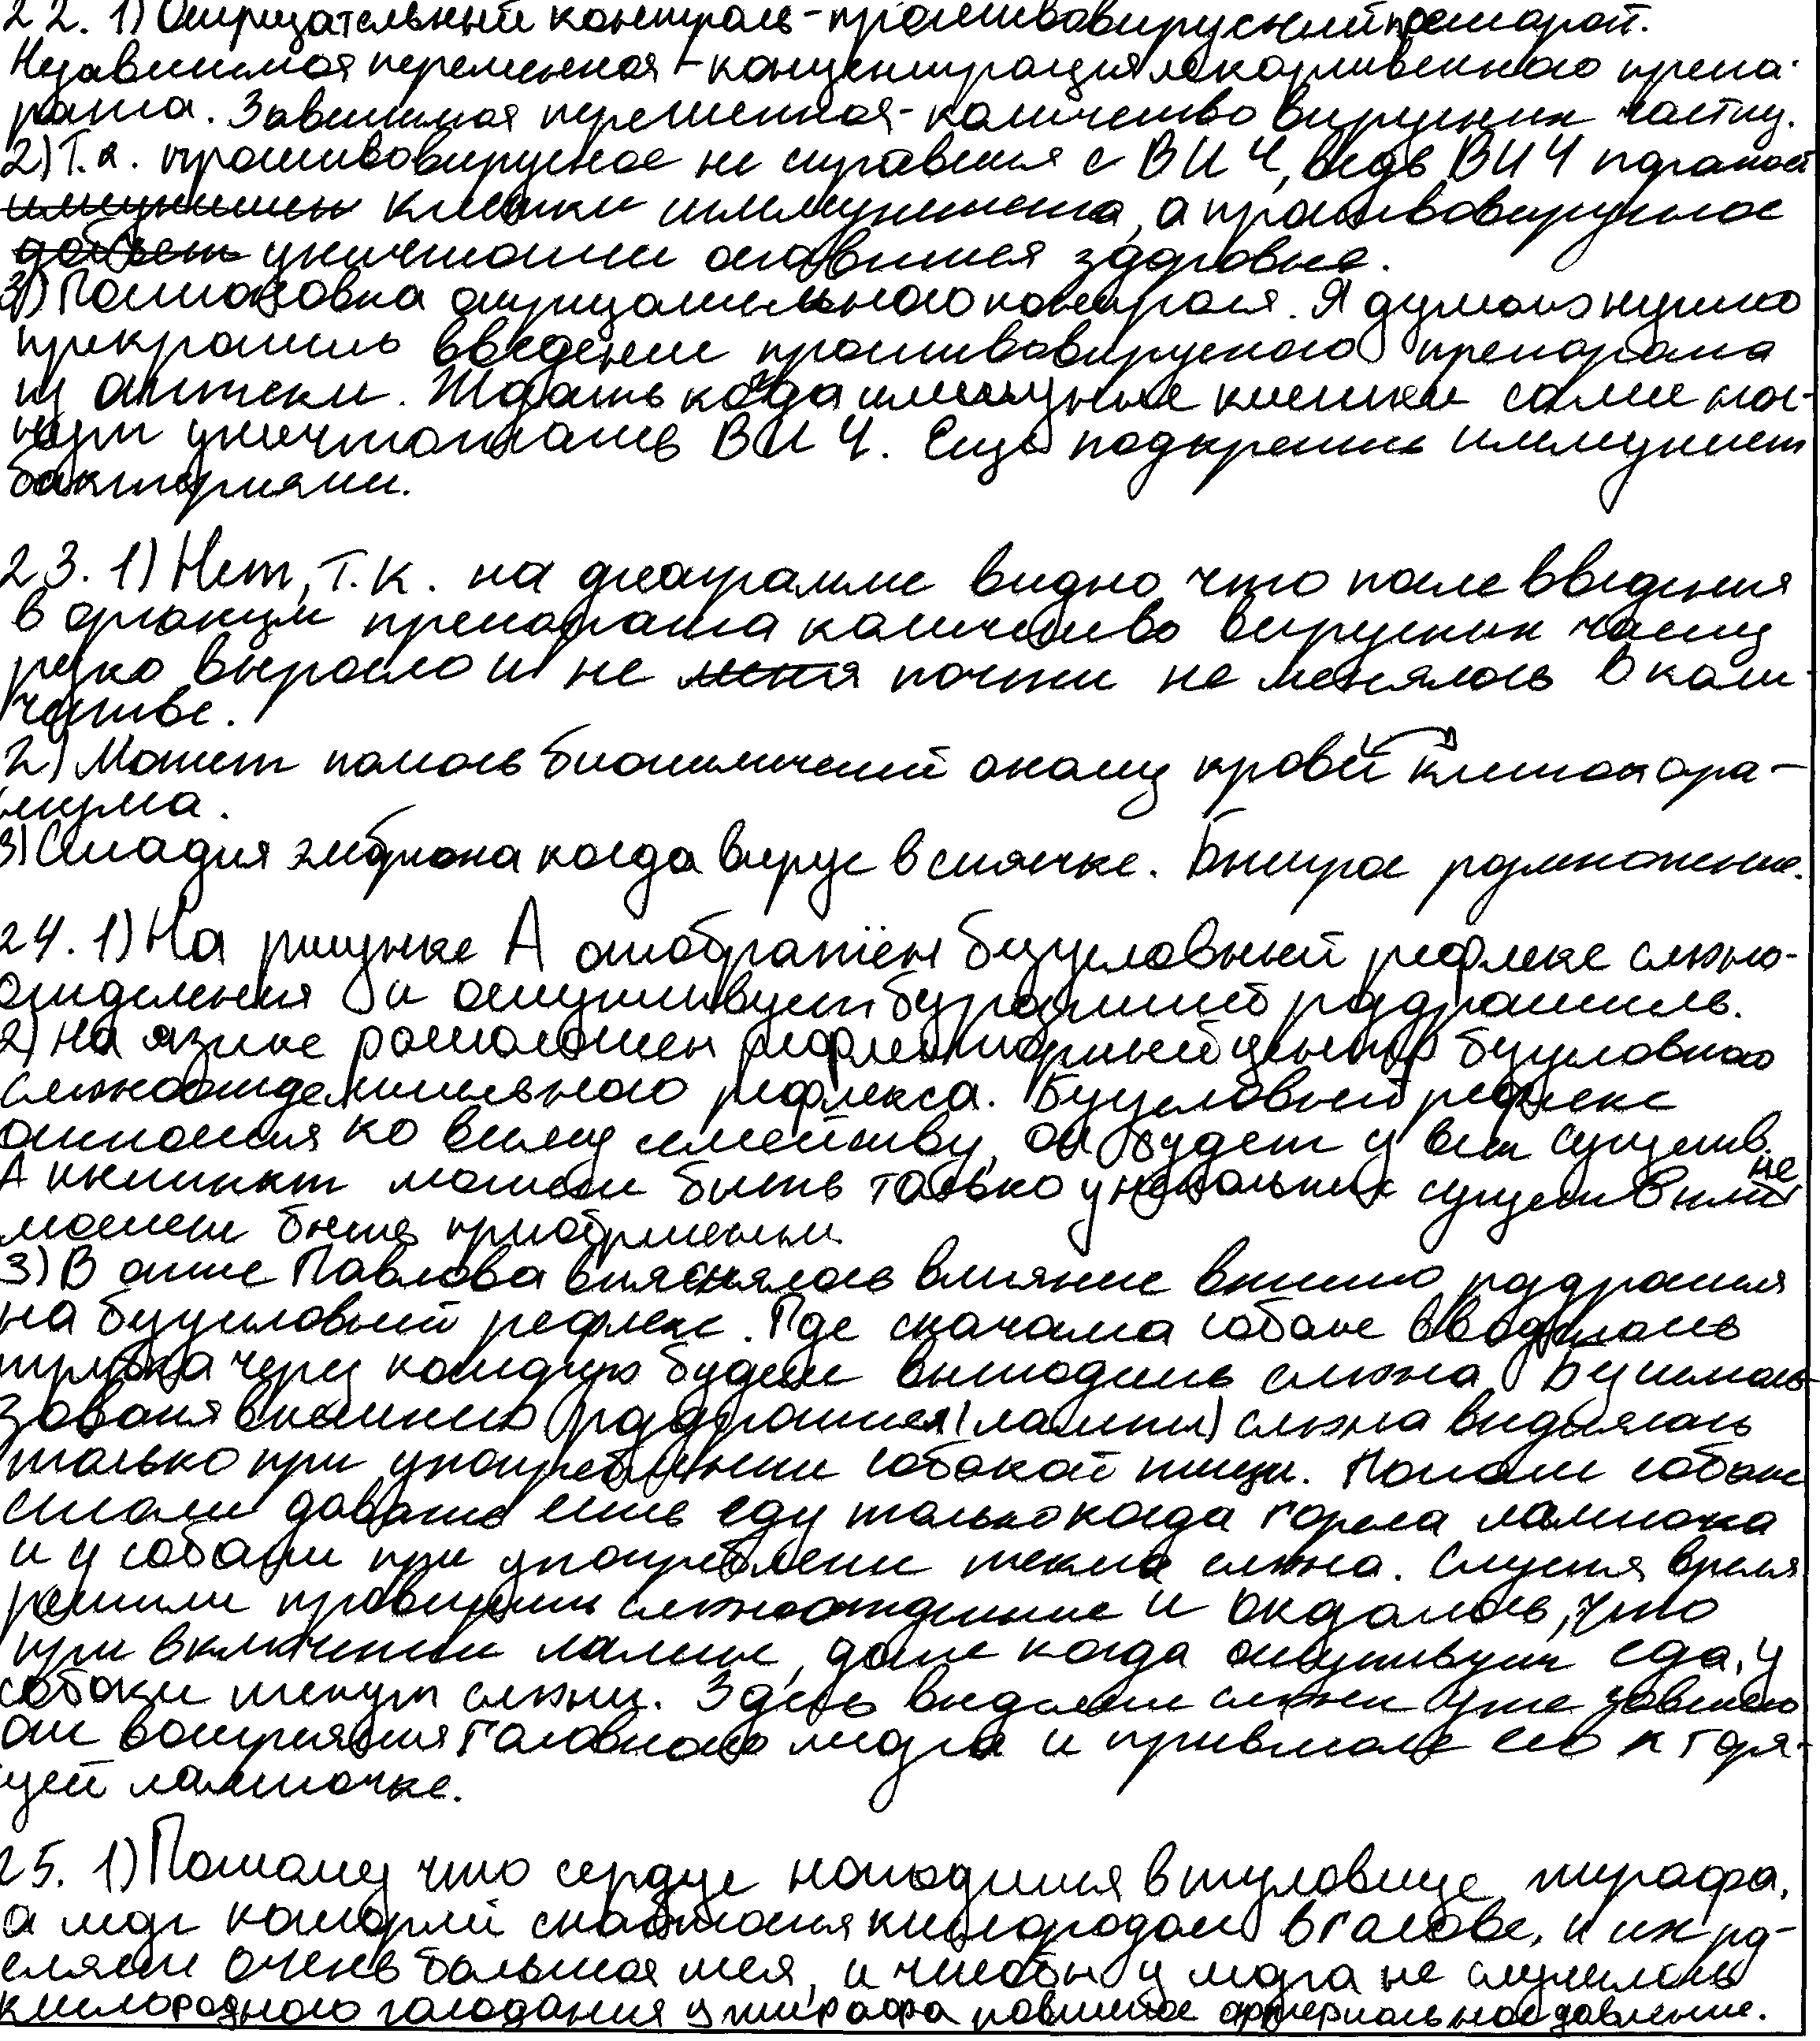 22. 1) Отрицательный контроль - противовирусный препарат.
Независимая переменная - концентрация лекарственного препа-
рата. Зависимая переменная - количество вирусных частиц.
2) Т.к. противовирусное не справится с ВИЧ, ведь ВИЧ поражает
клетки иммунитета, а противовирусное
уничтожит оставшиеся здоровые.
3) Постановка отрицательного контроля. Я думаю нужно
прекратить введение противовирусного препарата
из аптеки. Ждать когда иммунные клетки сами нач-
нут уничтожать ВИЧ. Ещё подкрепить иммунитет
бактериями.
23. 1) Нет, т.к. на диаграмме видно что после введения
в организм препарата количество вирусных частиц
резко выросло и не почти не менялось в коли-
честве.
2) Может помочь биохимический анализ крови и клеток орга-
низма.
3) Стадия эмбриона когда вирус в спячке. Быстрое размножение.
24. 1) На рисунке А отображён безусловный рефлекс слюно-
отделения и отсутствует безразличный раздражитель.
2) На языке расположен рефлекторный центр безусловного
слюноотделительного рефлекса. Безусловный рефлекс
относится ко всему семейству, он будет у всех существ.
А инстинкт может быть только у нескольких существ или не
может быть приобретенным
3) В опыте Павлова выяснялось влияние внешнего раздражителя
на безусловный рефлекс. Где сначала собаке вводилась
трубка через которую будет выходить слюна. Без использо-
зования внешних раздражителей (лампы) слюна выделялась
только при употреблении собакой пищи. Потом собаке
стали давать есть еду только когда горела лампочка
и у собаки при употреблении текла слюна. Спустя время
решили проверить слюноотделение и оказалось, что
при включении лампы, даже когда отсутствует еда, у
собаки текут слюни. Здесь выделение слюны уже зависело
от восприятия головного мозга и привыкание его к горя-
щей лампочке.
25. 1) Потому что сердце находится в туловище жирафа,
а мозг который снабжается кислородом в голове, и их раз-
деляет очень большая шея, и чтобы у мозга не случилось
кислородного голодания у жирафа повышенное артериальное давление.